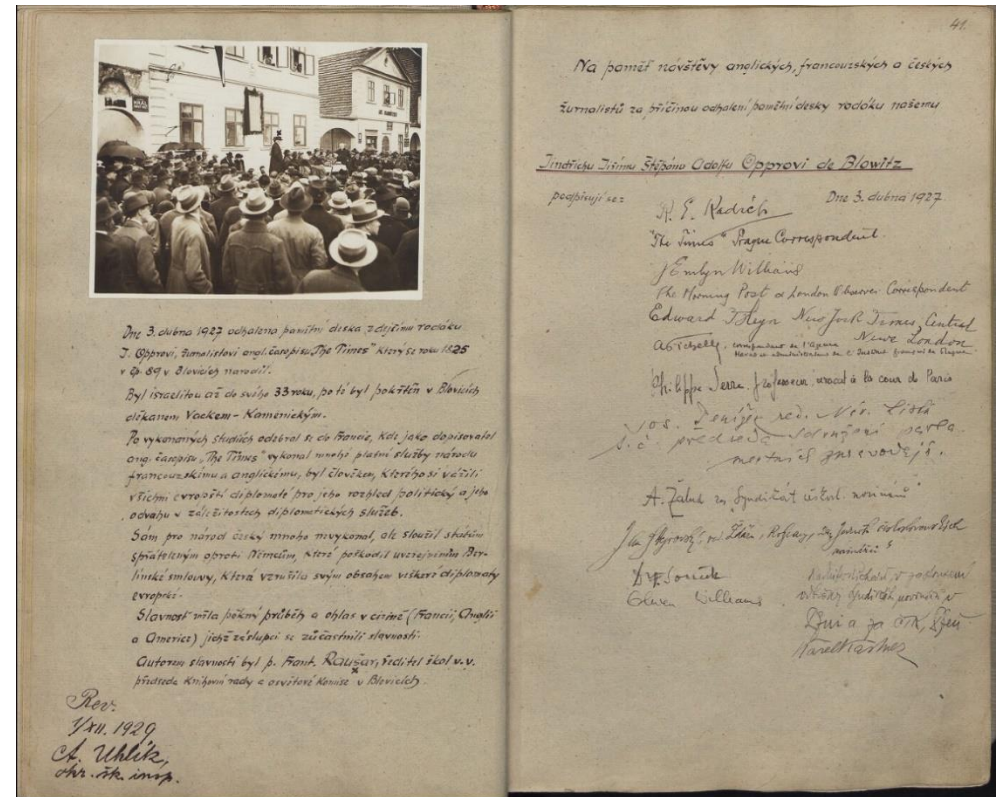 Dne 3. dubna 1927 odhalena pamětní deska zdejšímu rodáku
J. Opprovi, žurnalistovi angl. časopisu „The Times" který se roku 1825
v čp. 59 v Blovicích narodil.
Byl israelitou až do svého 33 roku, po té byl pokřtěn v Blovicích
děkanem Vackem-Kamenickým.
Po vykonaných studiích odebral se do Francie, kde jako dopisovatel
angl. časopisu „The Times" vykonal mnohé platné služby národu
francouzskému a anglickému, byl člověkem, kterého si vážili
všichni evropští diplomaté pro jeho rozhled politický a jeho
odvahu v záležitostech diplomatických služeb.
Sám pro národ český mnoho nevykonal, ale sloužil státům
spřáteleným oproti Němcům, které poškodil uveřejněním Ber-
línské smlouvy, která vzrušila svým obsahem veškeré diplomaty
evropské.
Slavnost měla pěkný průběh a ohlas v cizině (Francii, Anglii
a Americe) jichž zástupci se zúčastnili slavnosti.
Autorem slavnosti byl p. Frant. Raušar, ředitel škol v. v.
předseda knihovní rady a osvětové komise v Blovicích.
Rev.
1/XII. 1929
A. Uhlík,
okr. šk. insp.
41.
Na paměť návštěvy anglických, francouzských a českých
žurnalistů za příčinou odhalení pamětní desky rodáku našemu
Jindřichu Jiřímu Štěpánu Adolfu Opprovi de Blowitz
podpisují se: Dne 3. dubna 1927
"The Times" Prague Correspondent.
J Emlyn Williams
The Morning Post & London Observer Correspondent
Edward New York Times, Central
News London
correspondent de l'Agence
Havas et administrateur de l'Institut français de Prague
Philippe Serre, professeur, avocat à la cour de Paris
red. Nár. Listů
předseda sdružení parla-
mentních zpravodajů.
A. Žalud za „Syndikát českosl. novinářů"
Dr F. Souček
Gwen Williams
v zastoupení
odbočky syndikátu novinářů v
Plzni a za ČTK, Plzeň